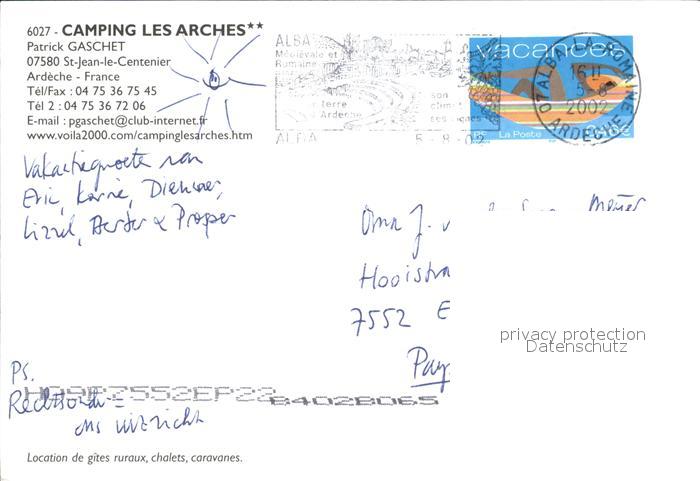 6027 - CAMPING LES ARCHES**
Patrick GASCHET
07580 St-Jean-le-Centenier
Ardèche - France
Tél/Fax : 04 75 36 75 45
Tél 2 : 04 75 36 72 06
E-mail : pgaschet@club-internet.fr
www.voila2000.com/campinglesarches.htm
ALBA
Médiévale et
Romaine
son
terre
climat
Ardèche
ALBA
5-8-02
vacances
La Poste
07 ALBA LA ROMAINE
16 H
5-8
2002
ARDECHE
Vakantiegroeten van
Eric, Karin,
& Prosper
Oma J. v
Meijer
Hooistra
7552 E
Pay
privacy protection
Datenschutz
PS.
Rechtsonder =
ons uitzicht
7552EP22
B402B065
Location de gîtes ruraux, chalets, caravanes.